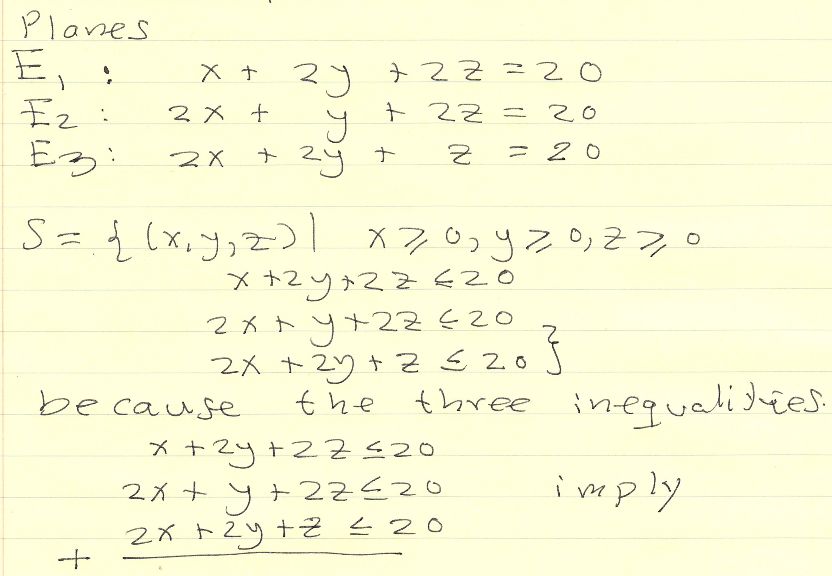 Planes
E₁ : x + 2y + 2z = 20
E₂ : 2x + y + 2z = 20
E₃ : 2x + 2y + z = 20
S = { (x, y, z) | x ⩾ 0, y ⩾ 0, z ⩾ 0
x + 2y + 2z ≤ 20
2x + y + 2z ≤ 20
2x + 2y + z ≤ 20 }
because the three inequalities.
x + 2y + 2z ≤ 20
2x + y + 2z ≤ 20 imply
2x + 2y + z ≤ 20
+